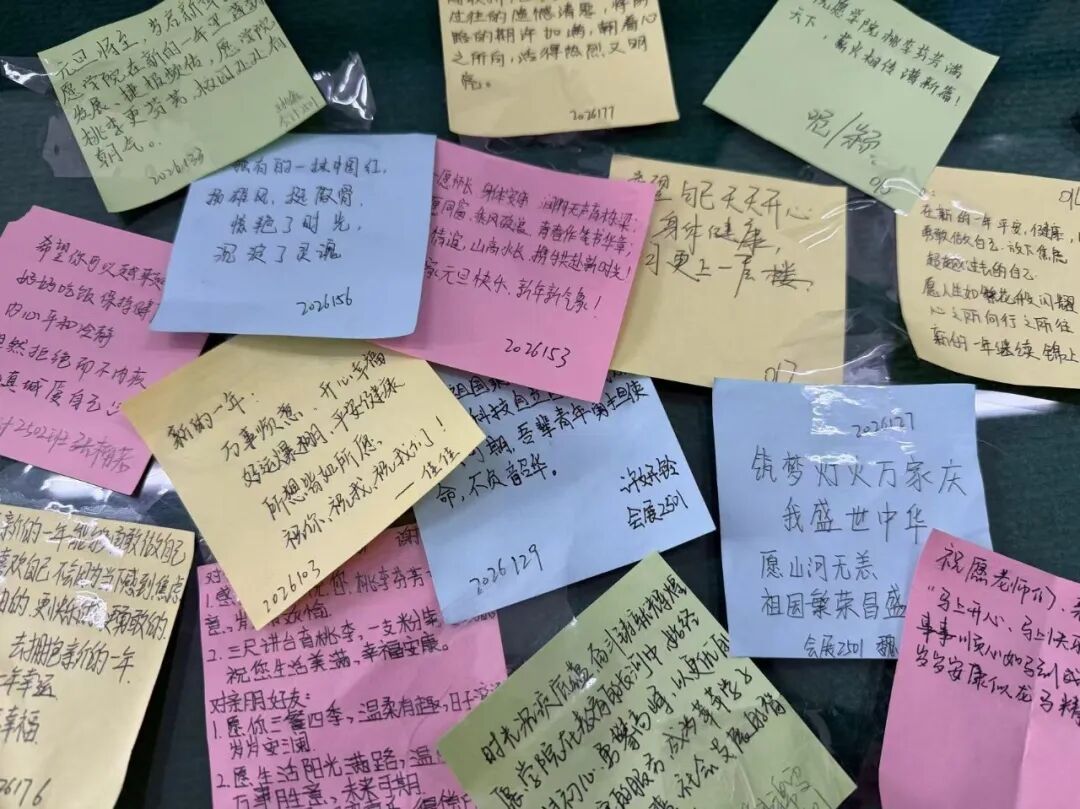 元旦将至，
愿学院在新的一年里蓬勃
发展、捷报频传，愿学院
桃李更芬芳，校园处处有
朝气。
2026133
过往的遗憾清零，将前
路的期许加满，朝着心
之所向，活得热烈又明
亮。
2026177
祝愿学院桃李芬芳满
天下，薪火相传谱新篇！
独有的一抹中国红，
扬雄风，挺傲骨，
惊艳了时光，
沉淀了灵魂
2026156
愿师长，身体安康，润物无声育栋梁；
愿同窗，乘风破浪，青春作笔书华章，
情谊，山高水长，携手共赴新时光！
元旦快乐，新年新气象！
2026153
希望自己天天开心
身体健康，
可更上一层楼
在新的一年平安，健康，
勇敢做自己，放下焦虑
超越过去的自己
愿人生如繁花般闪耀
心之所向行之所往
新的一年继续锦上
希望你可以越来越
好好吃饭保持健
内心平和冷静
坦然拒绝而不内疚
真诚爱自己
2502班
新的一年：
万事顺意，开心幸福
好运爆棚，平安健康
所想皆如所愿。
祝你、祝我、祝我们！
—佳佳
2026103
祖国繁
科技
可期，吾辈青年勇担使
命，不负韶华。
会展2501
2026129
2026127
筑梦灯火万家庆
我盛世中华
愿山河无恙
祖国繁荣昌盛
会展2501 魏
新的一年能够勇敢做自己
喜欢自己，不会因为当下感到焦虑
更勇敢的
去拥抱新的一年
幸运
幸福
2026176
谢
对
1.感 桃李芬芳
意，
2.三尺讲台育桃李，一支粉笔
祝您生活美满，幸福安康。
对亲朋好友：
1.愿你三餐四季，温柔有趣，日子
岁岁安澜
2.愿生活阳光满路，温
万事胜意，未来可期
时光沉淀底蕴，奋斗铸就辉煌
愿学院在教育的长河中，始终
初心，勇攀高峰，以更
的服务，成为莘莘学子
社会发展的
祝愿老师们，
“马上开心、马上
事事顺心如马到成
岁岁安康似龙马精